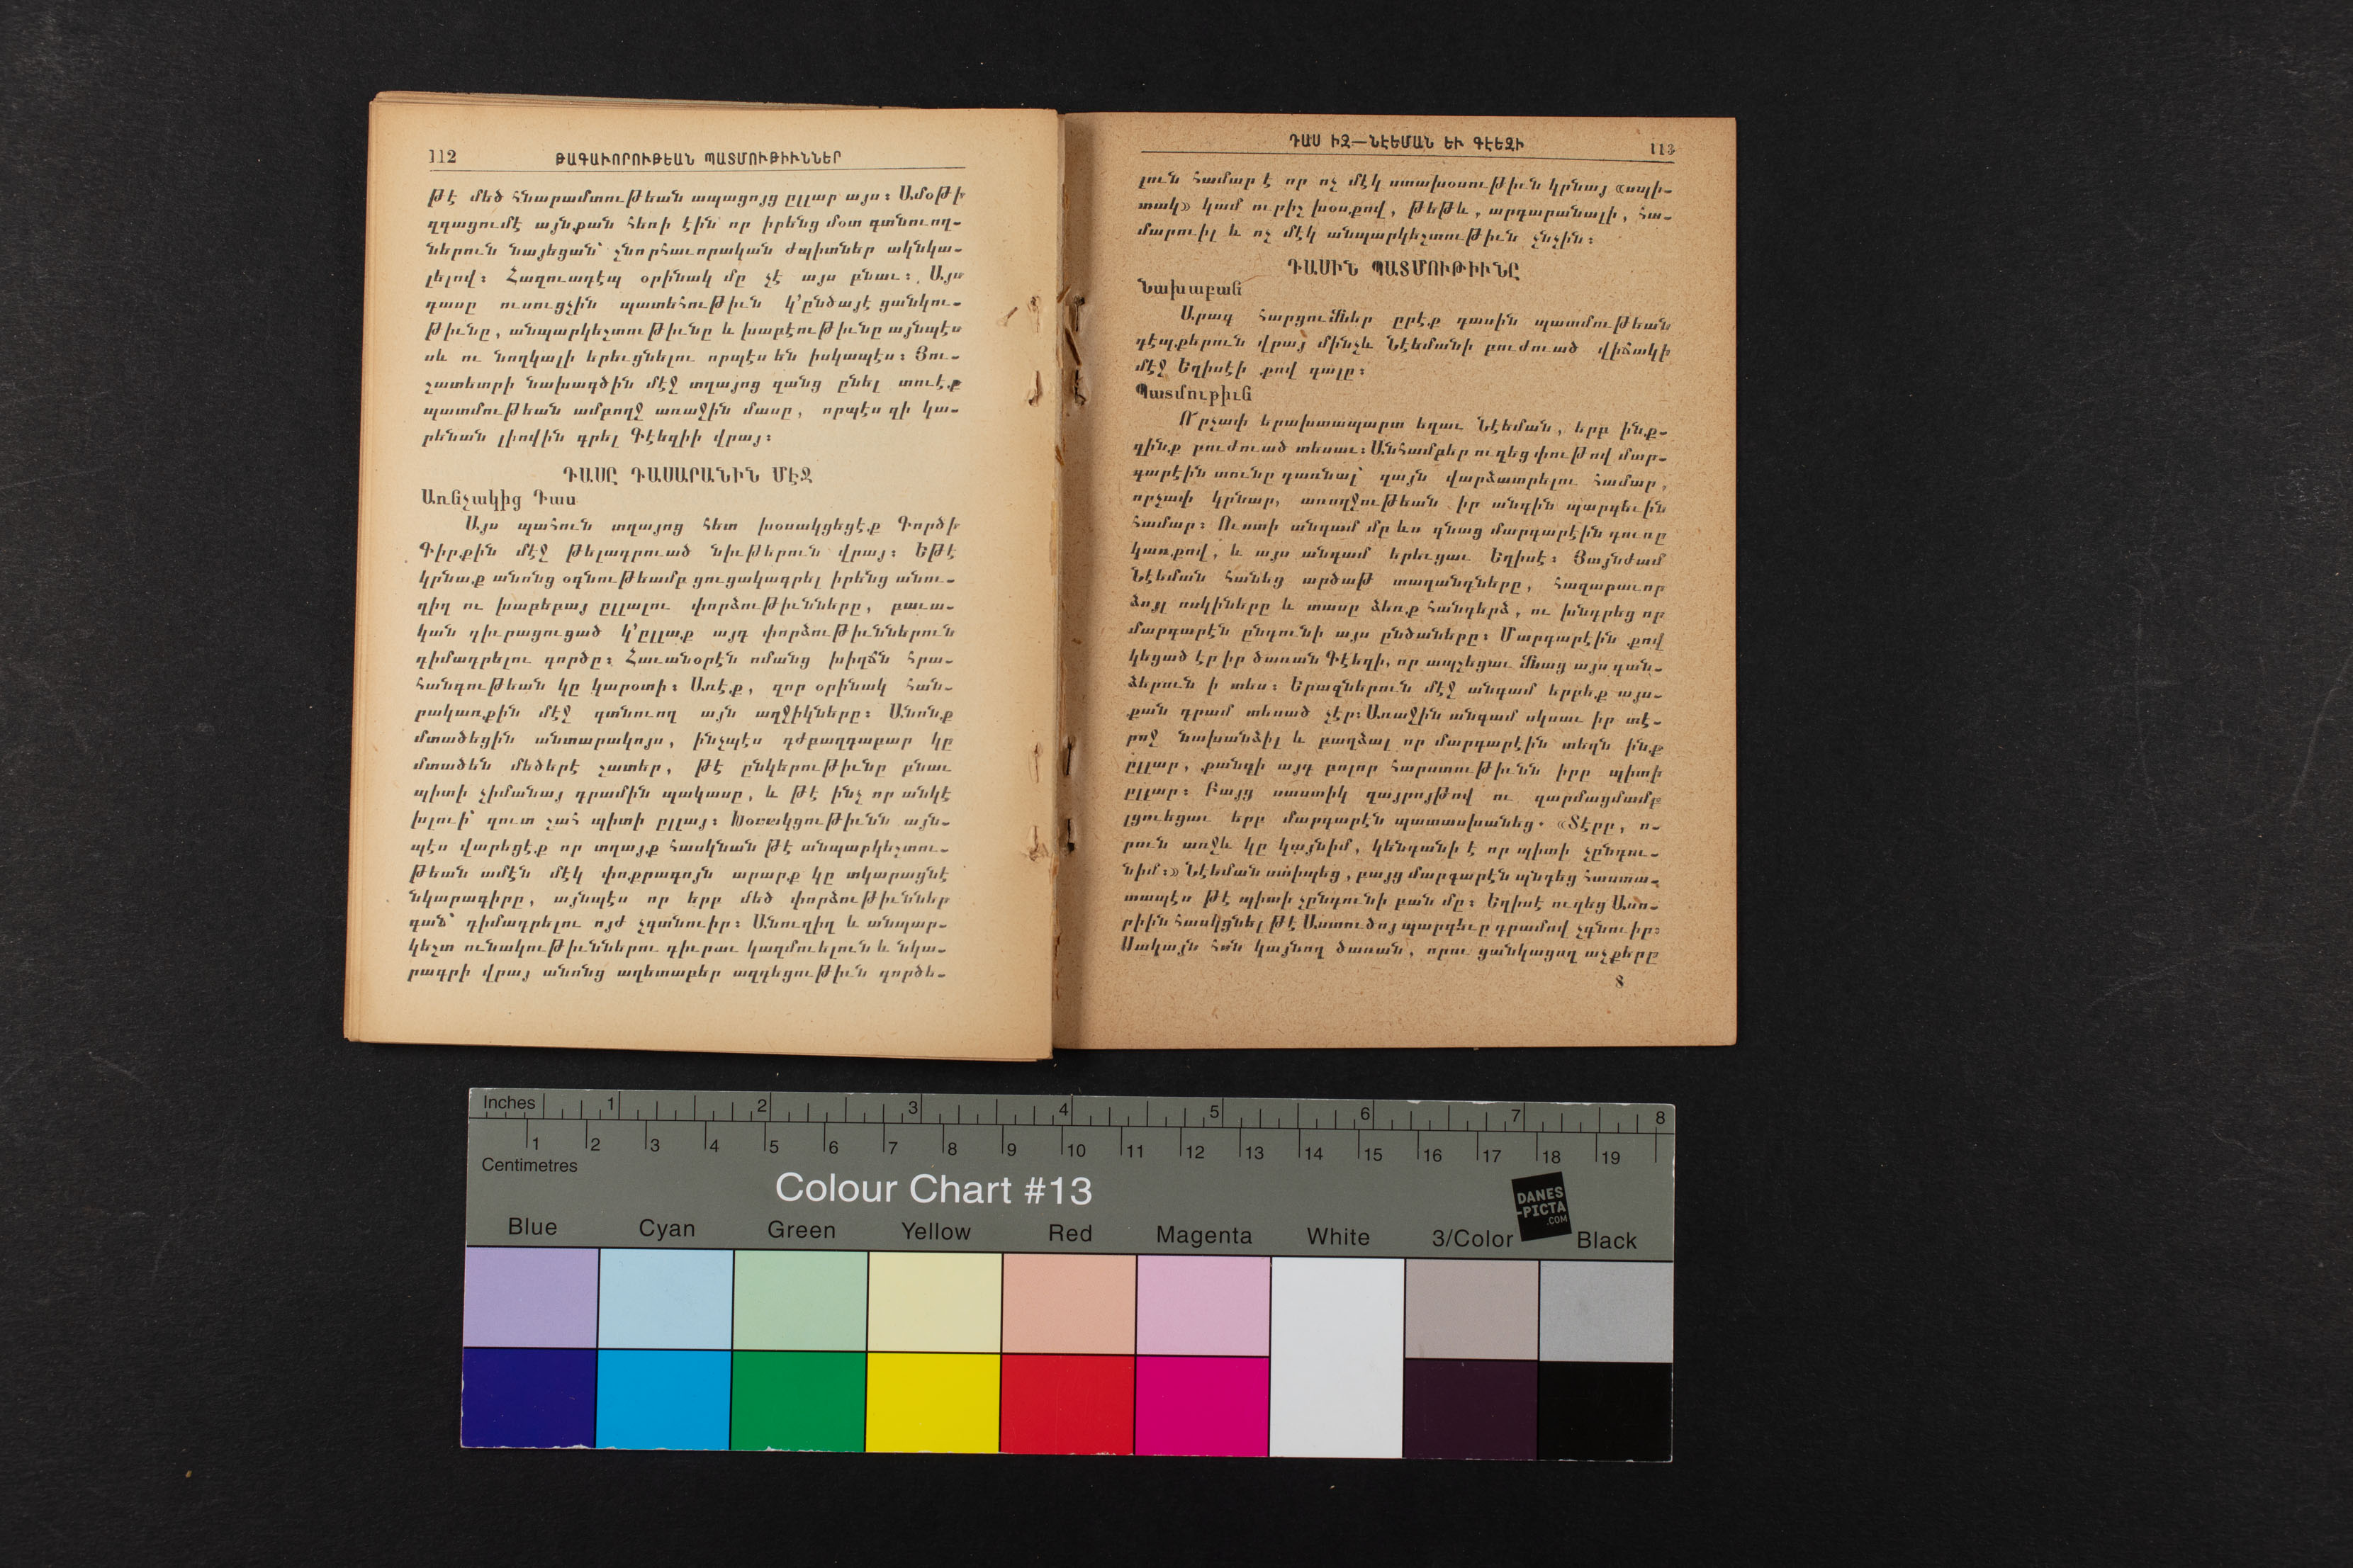 112 ԹԱԳԱՒՈՐՈՒԹԵԱՆ ՊԱՏՄՈՒԹԻՒՆՆԵՐ
թէ մեծ հնարամտութեան ապացոյց ըլլար այս։ Ամօթի
զգացումէ այնքան հեռի էին որ իրենց մօտ գտնուող-
ներուն նայեցան՝ շնորհաւորական ժպիտներ ակնկա-
լելով։ Հազուադէպ օրինակ մը չէ այս բնաւ։ Այս
դասը ուսուցչին պատեհութիւն կ՚ընծայէ ցանկու-
թիւնը, անպարկեշտութիւնը և խաբէութիւնը այնպէս
սև ու նողկալի երեւցնելու որպէս են իսկապէս։ Յու-
շատետրի նախագծին մէջ տղայոց զանց ընել տուէք
պատմութեան ամբողջ առաջին մասը, որպէս զի կա-
րենան լիովին գրել Գէեզիի վրայ։
ԴԱՍԸ ԴԱՍԱՐԱՆԻՆ ՄԷՋ
Առնչակից Դաս
Այս պահուն տղայոց հետ խօսակցեցէք Գործի
Գիրքին մէջ թելադրուած նիւթերուն վրայ։ Եթէ
կրնաք անոնց օգնութեամբ ցուցակագրել իրենց անու-
ղիղ ու խաբեբայ ըլլալու փորձութիւնները, բաւա-
կան դիւրացուցած կ՚ըլլաք այդ փորձութիւններուն
դիմադրելու գործը։ Հաւանօրէն ոմանց խիղճն հրա-
հանգութեան կը կարօտի։ Առէք, զոր օրինակ հան-
րակառքին մէջ գտնուող այն աղջիկները։ Անոնք
մտածեցին անտարակոյս, ինչպէս դժբաղդաբար կը
մտածեն մեծերէ շատեր, թէ ընկերութիւնը բնաւ
պիտի չիմանայ դրամին պակասը, և թէ ինչ որ անկէ
խլուի՝ զուտ շահ պիտի ըլլայ։ Խօսակցութիւնն այն-
պէս վարեցէք որ տղայք հասկնան թէ անպարկեշտու-
թեան ամէն մէկ փոքրագոյն արարք կը տկարացնէ
նկարագիրը, այնպէս որ երբ մեծ փորձութիւններ
գան՝ դիմադրելու ոյժ չգտնուիր։ Անուղիղ և անպար-
կեշտ ունակութիւններու դիւրաւ կազմուելուն և նկա-
րագրի վրայ անոնց աղետաբեր ազդեցութիւն գործե-
ԴԱՍ ԻԶ—ՆԷԵՄԱՆ ԵՒ ԳԷԵԶԻ 113
լուն համար է որ ոչ մէկ ստախօսութիւն կրնայ «սպի-
տակ» կամ ուրիշ խօսքով, թեթև, արդարանալի, հա-
մարուիլ և ոչ մէկ անպարկեշտութիւն չնչին։
ԴԱՍԻՆ ՊԱՏՄՈՒԹԻՒՆԸ
Նախաբան
Արագ հարցումներ ըրէք դասին պատմութեան
դէպքերուն վրայ մինչև Նէեմանի բուժուած վիճակի
մէջ Եղիսէի քով գալը։
Պատմութիւն
Ո՜րչափ երախտապարտ եղաւ Նէեման, երբ ինք-
զինք բուժուած տեսաւ։ Անհամբեր ուղեց փութով մար-
գարէին տունը դառնալ՝ զայն վարձատրելու համար,
որչափ կրնար, առողջութեան իր անգին պարգեւին
համար։ Ուստի անգամ մը ևս գնաց մարգարէին դուռը
կառքով, և այս անգամ երեւցաւ Եղիսէ։ Յայնժամ
Նէեման հանեց արծաթ տաղանդները, հազարաւոր
ձոյլ ոսկիները և տասը ձեռք հանդերձ, ու խնդրեց որ
մարգարէն ընդունի այս ընծաները։ Մարգարէին քով
կեցած էր իր ծառան Գէեզի, որ ապշեցաւ մնաց այս գան-
ձերուն ի տես։ Երազներուն մէջ անգամ երբեք այս-
քան դրամ տեսած չէր։ Առաջին անգամ սկսաւ իր տէ-
րոջ նախանձիլ և բաղձալ որ մարգարէին տեղն ինք
ըլլար, քանզի այդ բոլոր հարստութիւնն իրը պիտի
ըլլար։ Բայց սաստիկ զայրոյթով ու զարմացմամբ
լցուեցաւ երբ մարգարէն պատասխանեց. «Տէրը, ո-
րուն առջև կը կայնիմ, կենդանի է որ պիտի չընդու-
նիմ։» Նէեման ստիպեց, բայց մարգարէն պնդեց հաստա-
տապէս թէ պիտի չընդունի բան մը։ Եղիսէ ուղեց Ասո-
րիին հասկցնել թէ Աստուծոյ պարգեւը դրամով չգնուիր։
Սակայն հոն կայնող ծառան, որու ցանկացող աչքերը
8
Inches 1 2 3 4 5 6 7 8
1 2 3 4 5 6 7 8 9 10 11 12 13 14 15 16 17 18 19
Centimetres
Colour Chart #13
DANES
-PICTA
.COM
Blue Cyan Green Yellow Red Magenta White 3/Color Black